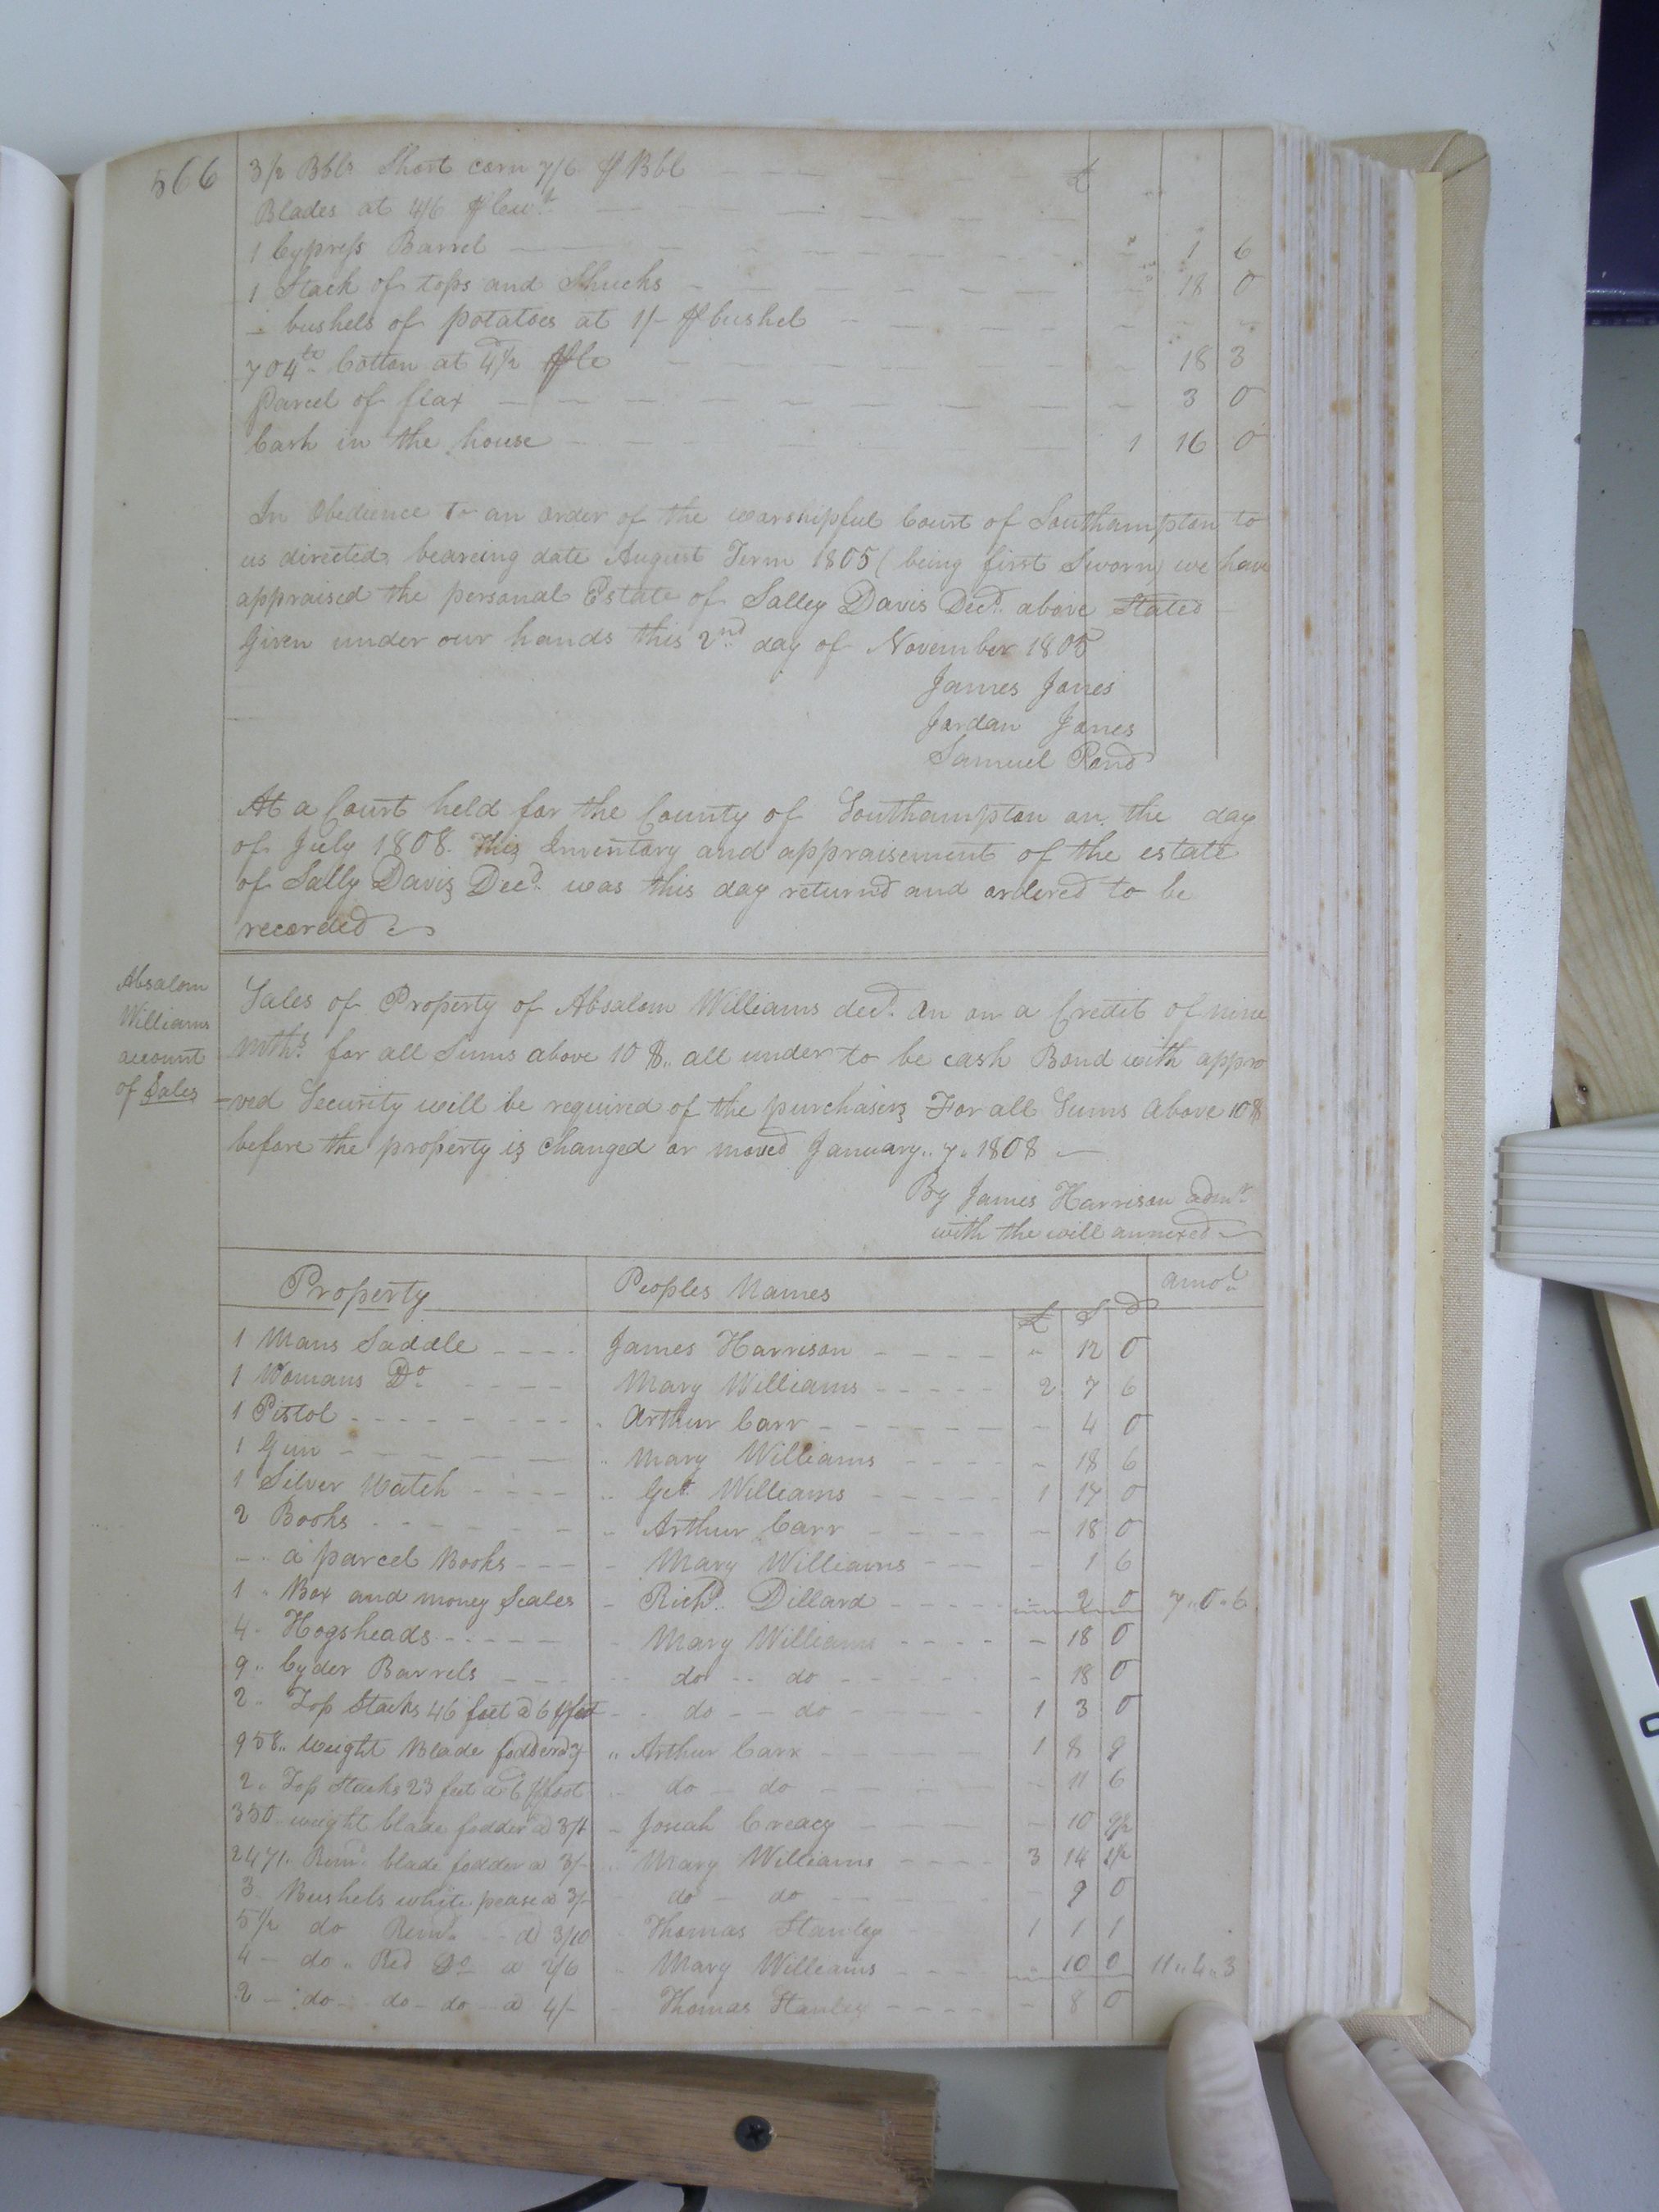 566
3 1/2 Bbls Short corn 7/6 ⅌ Bbl £
Blades at 4/6 ⅌ Cwt
1 Cypress Barrel 1 6
1 Stack of tops and Shucks 18 0
bushels of potatoes at 1/- ⅌ bushel
704 lb Cotton at 4 1/2 18 3
Parcel of flax 3 0
Cash in the house 1 16 0
In Obedience to an order of the worshipful Court of Southampton to
us directed, bearing date August Term 1805 (being first Sworn) we have
appraised the personal Estate of Salley Davis Decd. above Stated
Given under our hands this 2nd day of November 1805
James Jones
Jordan Jones
Samuel Pond
At a Court held for the County of Southampton on the day
of July 1808. This Inventory and appraisement of the estate
of Sally Davis Decd. was this day returnd and ordered to be
recorded
Absalom
Williams
account
of Sales
Sales of Property of Absalom Williams decd. an on a Credit of nine
mths. for all Sums above 10 $,, all under to be cash Bond with appro
-ved Security will be required of the purchasers For all Sums Above 10$
before the property is changed or moved January,, 7,, 1808
By James Harrison admr.
with the will annexed
Property Peoples Names amot.
£ S D
1 Mans Saddle James Harrison " 12 0
1 Womans Do. Mary Williams 2 7 6
1 Pistol Arthur Carr - 4 0
1 Gun Mary Williams - 18 6
1 Silver Watch Get. Williams 1 17 0
2 Books Arthur Carr - 18 0
a parcel Books Mary Williams - 1 6
1 Box and money Scales Richd. Dillard 2 0 7,, 0,, 6
4 Hogsheads Mary Williams - 18 0
9 Cyder Barrels do do - 18 0
2 Top Stacks 46 feet @ 6 ⅌ foot do do 1 3 0
958,, weight Blade fodder @ 3/- Arthur Carr 1 8 9
2 Top Stacks 23 feet @ 6 ⅌ foot do do - 11 6
350 weight blade fodder @ 3/1 Josiah Creacy - 10 9 1/2
2471 Remr. blade fodder @ 3/- Mary Williams 3 14 1 1/2
3 Bushels white pease @ 3/- do do - 9 0
5 1/2 do Remr. @ 3/10 Thomas Stanley 1 1 1
4 do Red Do @ 2/6 Mary Williams 10 0 11,, 4,, 3
2 do do do @ 4/- Thomas Stanley - 8 0